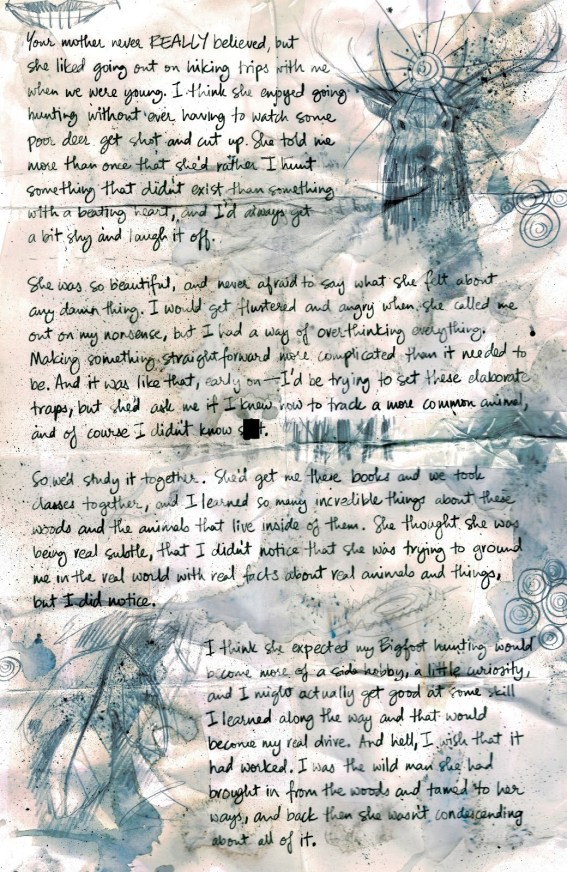 Your mother never REALLY believed, but
she liked going out on hiking trips with me
when we were young. I think she enjoyed going
hunting without ever having to watch some
poor deer get shot and cut up. She told me
more than once that she'd rather I hunt
something that didn't exist than something
with a beating heart, and I'd always get
a bit shy and laugh it off.
She was so beautiful, and never afraid to say what she felt about
any damn thing. I would get flustered and angry when she called me
out on my nonsense, but I had a way of overthinking everything.
Making something straightforward more complicated than it needed to
be. And it was like that, early on—I'd be trying to set these elaborate
traps, but she'd ask me if I knew how to track a more common animal,
and of course I didn't know s t.
So we'd study it together. She'd get me these books and we took
classes together, and I learned so many incredible things about these
woods and the animals that live inside of them. She thought she was
being real subtle, that I didn't notice that she was trying to ground
me in the real world with real facts about real animals and things,
but I did notice.
I think she expected my Bigfoot hunting would
become more of a side hobby, a little curiosity,
and I might actually get good at some skill
I learned along the way and that would
become my real drive. And hell, I wish that it
had worked. I was the wild man she had
brought in from the woods and tamed to her
ways, and back then she wasn't condescending
about all of it.